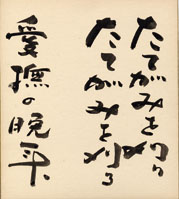 たてがみを刈り
たてがみを刈る
愛撫の晩平